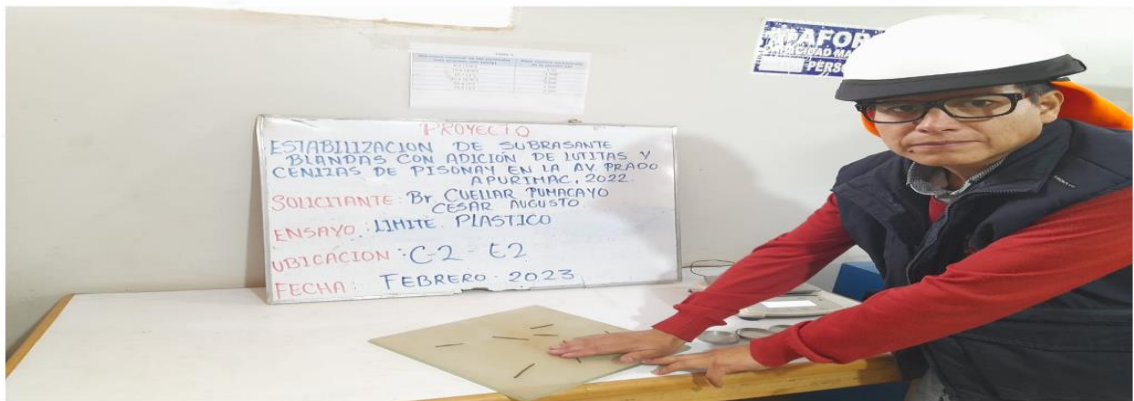 PROYECTO
ESTABILIZACION DE SUBRASANTE
BLANDAS CON ADICION DE LUTITAS Y
CENIZAS DE PISONAY EN LA AV. PRADO
APURIMAC, 2022.
SOLICITANTE: Br CUELLAR PUMACAYO
CESAR AUGUSTO
ENSAYO: LIMITE PLASTICO
UBICACION: C-2 - E2
FECHA: FEBRERO 2023
AFOR
CAPACIDAD MA
PERSO